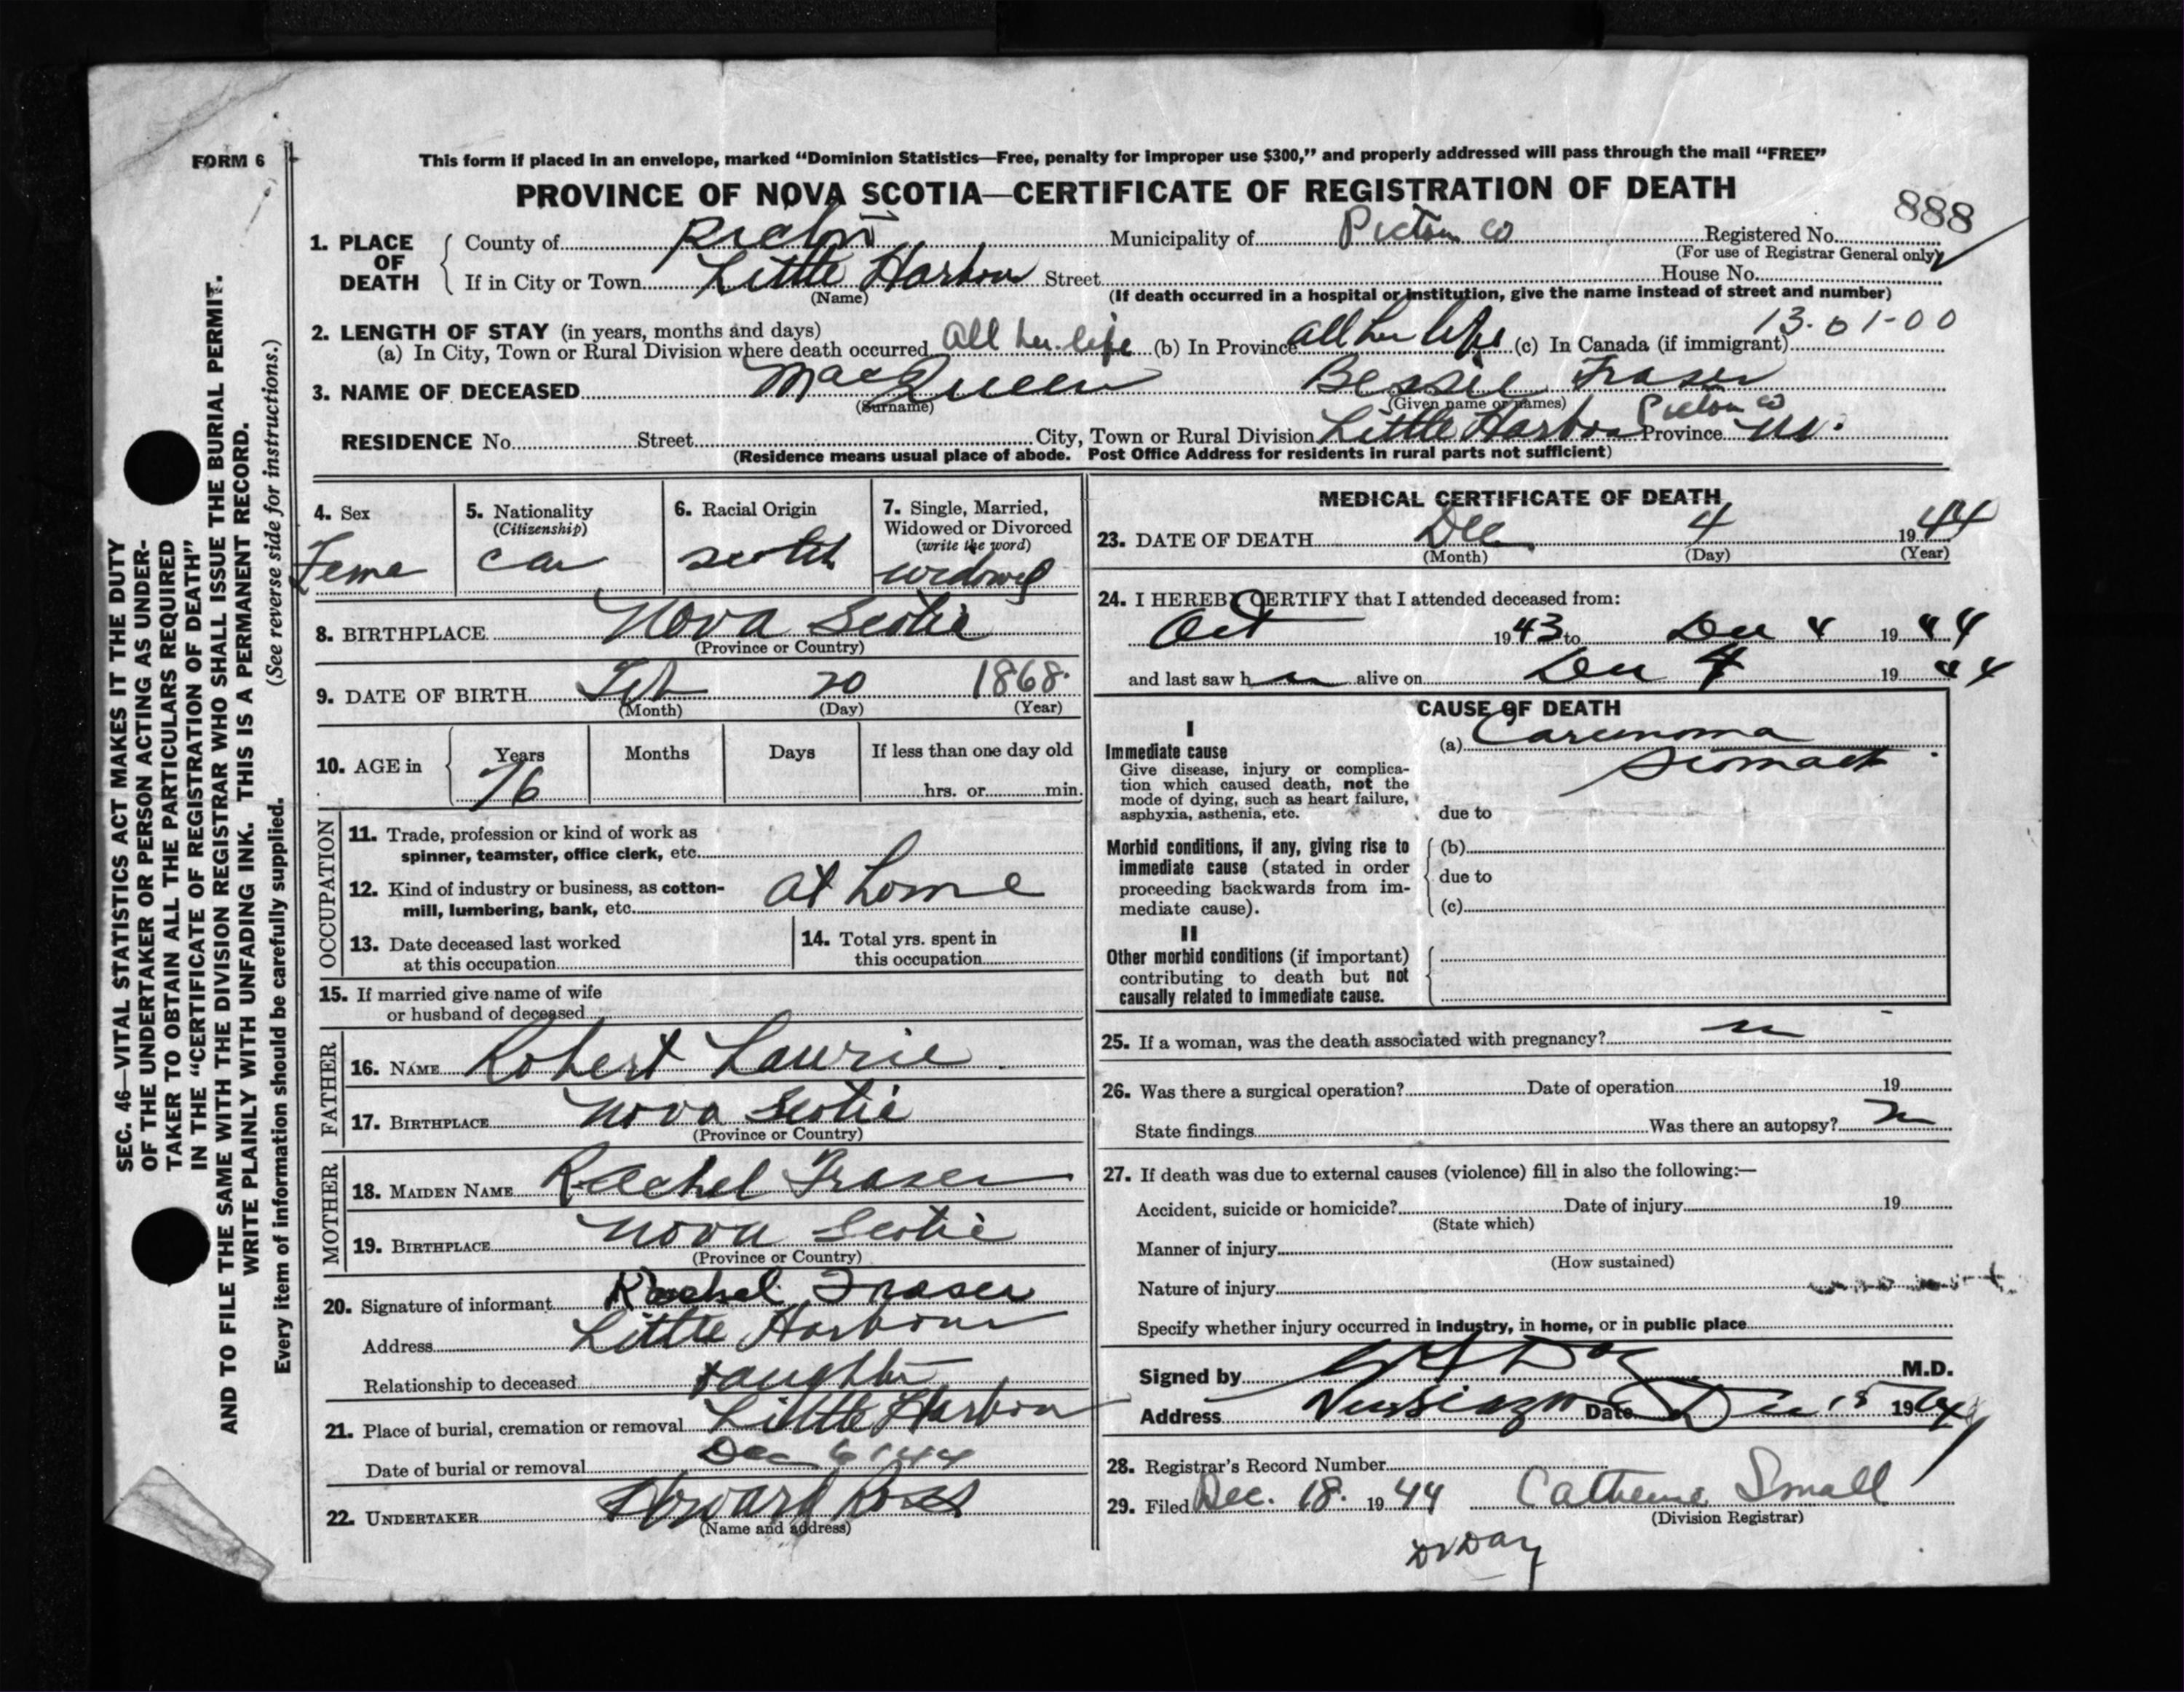 FORM 6
This form if placed in an envelope, marked “Dominion Statistics—Free, penalty for improper use $300,” and properly addressed will pass through the mail “FREE”
PROVINCE OF NOVA SCOTIA—CERTIFICATE OF REGISTRATION OF DEATH
888
1. PLACE OF DEATH
County of Pictou Municipality of Pictou Co Registered No.
(For use of Registrar General only)
If in City or Town Little Harbour Street House No.
(Name) (If death occurred in a hospital or institution, give the name instead of street and number)
2. LENGTH OF STAY (in years, months and days) 13-01-00
(a) In City, Town or Rural Division where death occurred All her life (b) In Province all her life (c) In Canada (if immigrant)
3. NAME OF DECEASED MacQueen Bessie Fraser
(Surname) (Given name or names)
Pictou Co
RESIDENCE No. Street City, Town or Rural Division Little Harbour Province N.S.
(Residence means usual place of abode. Post Office Address for residents in rural parts not sufficient)
4. Sex
Fema
5. Nationality
(Citizenship)
Can
6. Racial Origin
Scotch
7. Single, Married,
Widowed or Divorced
(write the word)
widowed
8. BIRTHPLACE Nova Scotia
(Province or Country)
9. DATE OF BIRTH Feb 20 1868
(Month) (Day) (Year)
10. AGE in Years Months Days If less than one day old
76 hrs. or min.
OCCUPATION
11. Trade, profession or kind of work as
spinner, teamster, office clerk, etc.
12. Kind of industry or business, as cotton-
mill, lumbering, bank, etc. at home
13. Date deceased last worked
at this occupation
14. Total yrs. spent in
this occupation
15. If married give name of wife
or husband of deceased
FATHER
16. NAME Robert Laurie
17. BIRTHPLACE Nova Scotia
(Province or Country)
MOTHER
18. MAIDEN NAME Rachel Fraser
19. BIRTHPLACE Nova Scotia
(Province or Country)
20. Signature of informant Rachel Fraser
Address Little Harbour
Relationship to deceased daughter
21. Place of burial, cremation or removal Little Harbour
Date of burial or removal Dec 6 1944
22. UNDERTAKER Howard Ross
(Name and address)
MEDICAL CERTIFICATE OF DEATH
23. DATE OF DEATH Dec 4 1944
(Month) (Day) (Year)
24. I HEREBY CERTIFY that I attended deceased from:
Oct 1943 to Dec 4 1944
and last saw h alive on Dec 4 1944
CAUSE OF DEATH
I
Immediate cause
Give disease, injury or complica-
tion which caused death, not the
mode of dying, such as heart failure,
asphyxia, asthenia, etc.
(a) Carcinoma
Stomach
due to
Morbid conditions, if any, giving rise to
immediate cause (stated in order
proceeding backwards from im-
mediate cause).
(b)
due to
(c)
II
Other morbid conditions (if important)
contributing to death but not
causally related to immediate cause.
25. If a woman, was the death associated with pregnancy? no
26. Was there a surgical operation? Date of operation 19
State findings Was there an autopsy? no
27. If death was due to external causes (violence) fill in also the following:—
Accident, suicide or homicide? Date of injury 19
(State which)
Manner of injury
(How sustained)
Nature of injury
Specify whether injury occurred in industry, in home, or in public place
Signed by Day M.D.
Address Date Dec 15 1944
28. Registrar's Record Number
29. Filed Dec. 18. 1944 Catherine Small
(Division Registrar)
Dr Day
SEC. 46—VITAL STATISTICS ACT MAKES IT THE DUTY
OF THE UNDERTAKER OR PERSON ACTING AS UNDER-
TAKER TO OBTAIN ALL THE PARTICULARS REQUIRED
IN THE “CERTIFICATE OF REGISTRATION OF DEATH”
AND TO FILE THE SAME WITH THE DIVISION REGISTRAR WHO SHALL ISSUE THE BURIAL PERMIT.
WRITE PLAINLY WITH UNFADING INK. THIS IS A PERMANENT RECORD.
Every item of information should be carefully supplied. (See reverse side for instructions.)